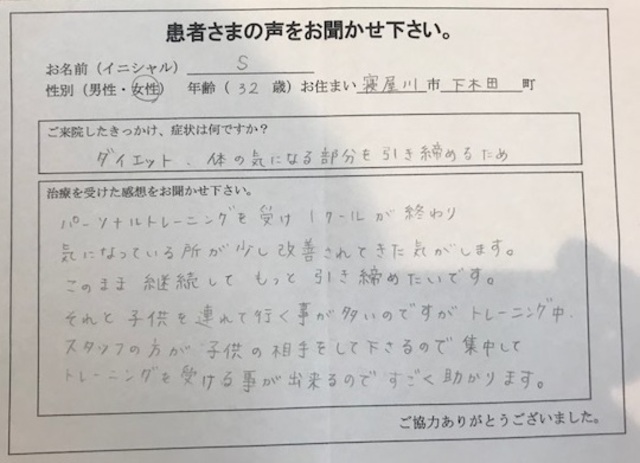 患者さまの声をお聞かせ下さい。
お名前(イニシャル) S
性別(男性・女性) 年齢( 32 歳)お住まい 寝屋川 市 下木田 町
ご来院したきっかけ、症状は何ですか?
ダイエット、体の気になる部分を引き締めるため
治療を受けた感想をお聞かせ下さい。
パーソナルトレーニングを受け1クールが終わり
気になっている所が少し改善されてきた気がします。
このまま継続してもっと引き締めたいです。
それと子供を連れて行く事が多いのですがトレーニング中、
スタッフの方が子供の相手をして下さるので集中して
トレーニングを受ける事が出来るのですごく助かります。
ご協力ありがとうございました。